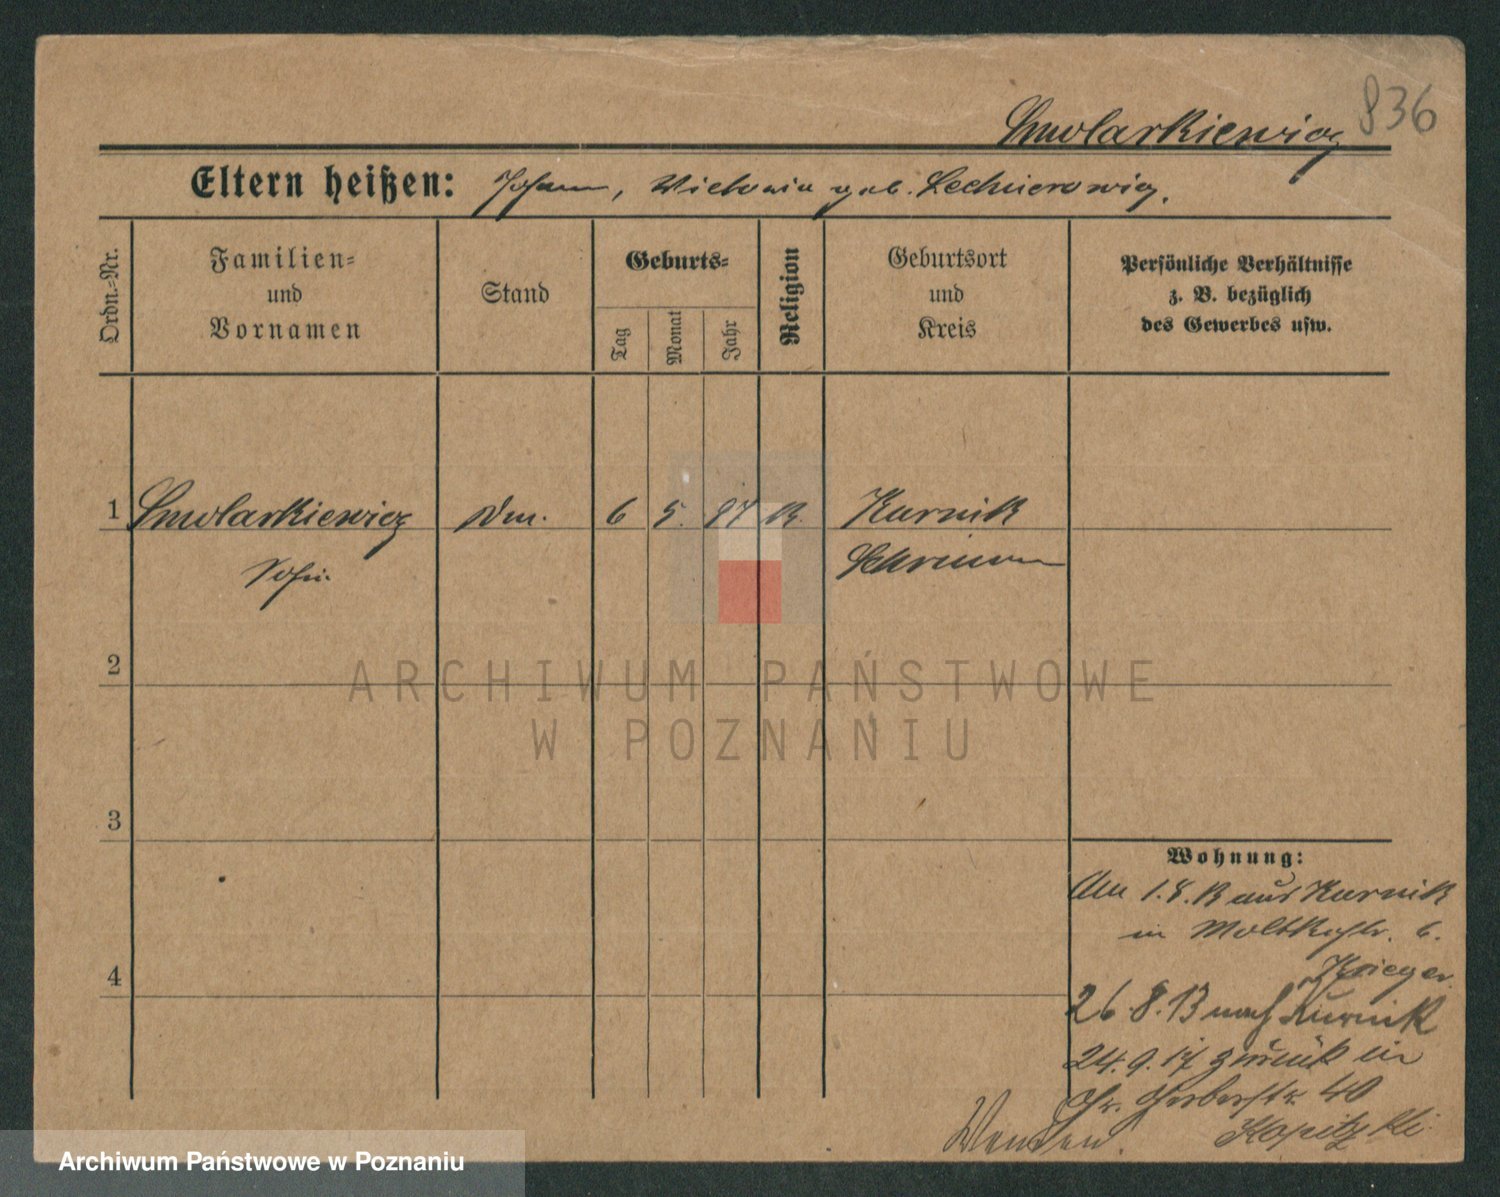 836
Smolarkiewicz
Eltern heißen: Johann, Victoria geb. Lechnierowicz.
Ordn.=Nr.
Familien=
und
Vornamen
Stand
Geburts=
Tag
Monat
Jahr
Religion
Geburtsort
und
Kreis
Persönliche Verhältnisse
z. B. bezüglich
des Gewerbes usw.
1 Smolarkiewicz 6 5. 97 K. Kurnik
Schrimm
2
ARCHIWUM PAŃSTWOWE
W POZNANIU
3
Wohnung:
Am 1.8.13 aus Kurnik
in Moltkestr. 6.
Krieger
4
26.8.13 nach Kurnik
24.9.17 zurück in
Gr. Gerberstr. 40
Kopitzki
Wenden.
Archiwum Państwowe w Poznaniu